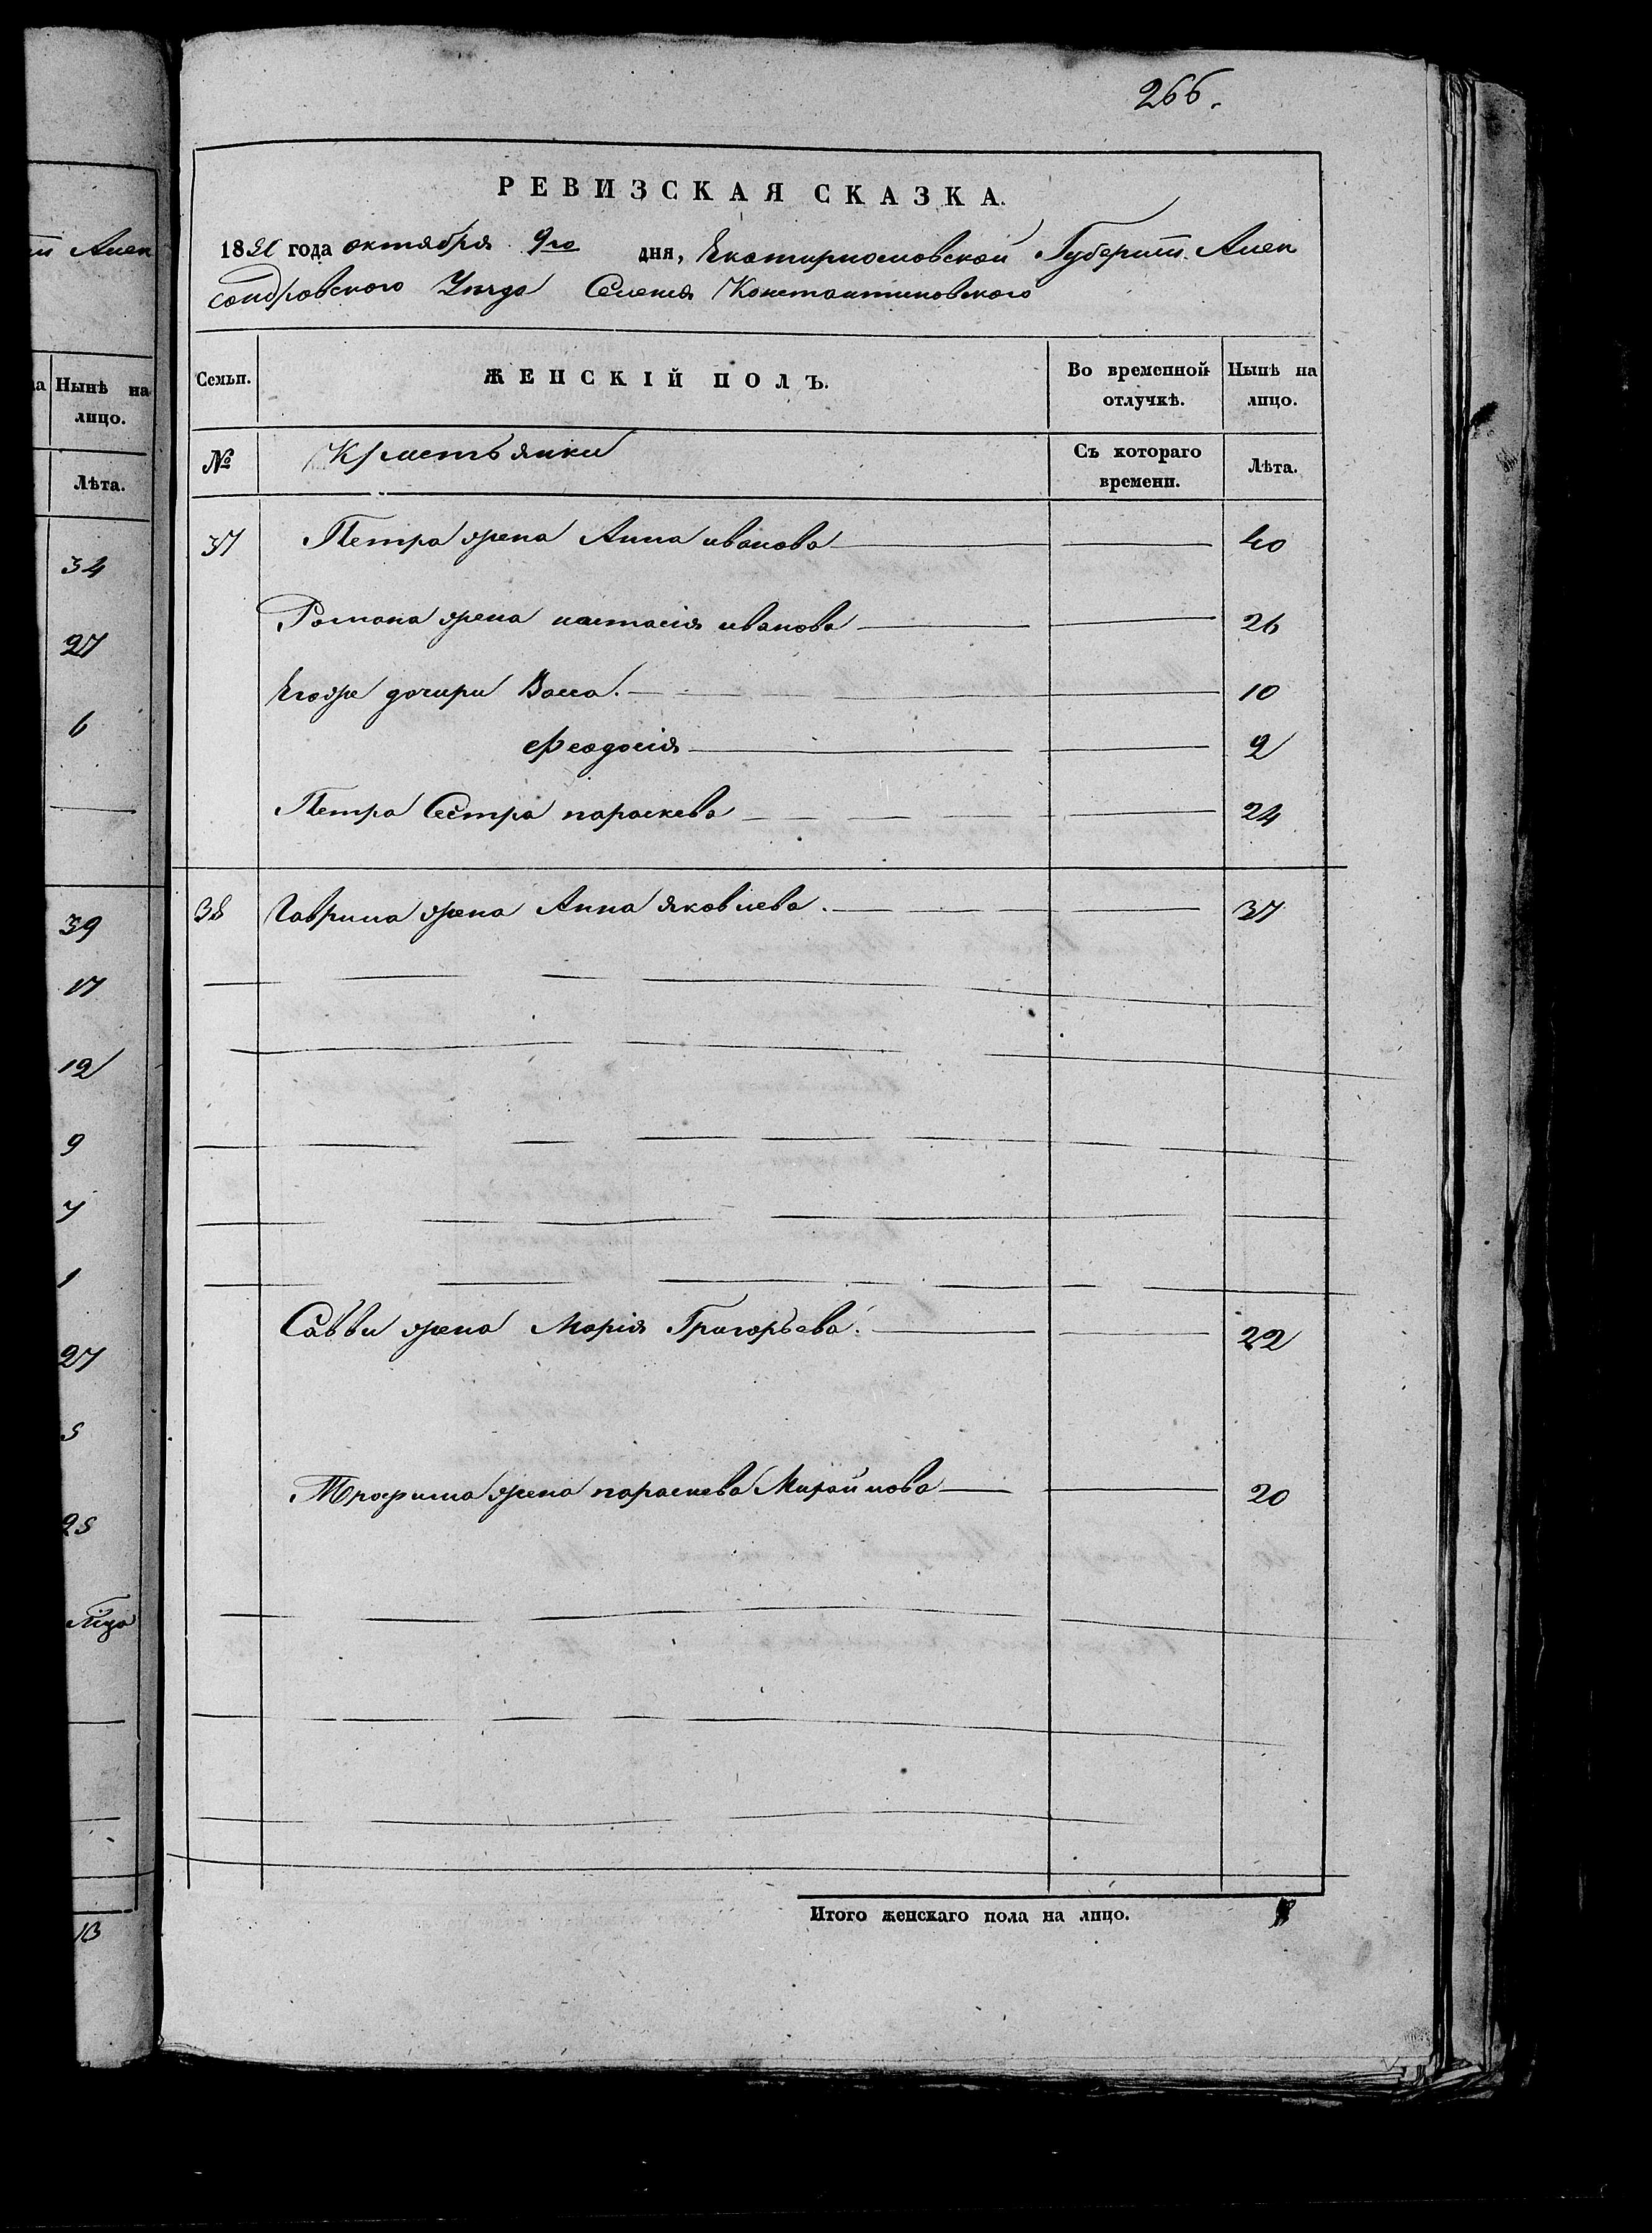 266.
РЕВИЗСКАЯ СКАЗКА.
1850 года октября 9го дня, Екатиринославской Губерніи Алек
сандровского Уезда Селенія Константиновского
Семьи. ЖЕНСКІЙ ПОЛЪ. Во временной отлучкѣ. Нынѣ на лицо.
№ Крестьянки Съ котораго времени. Лѣта.
37 Петра жена Анна иванова 40
Романа жена настасія иванова 26
Егоже дочири Васса. 10
Феодосія 9
Петра Сестра параскева 24
38 Гаврила жена Анна яковлева. 37
Саввы жена Марія Григорьева. 22
Трофима жена параскева Михайлова 20
Итого женскаго пола на лицо. 8
Алек
Нынѣ на
лицо.
Лѣта.
34
27
6
39
17
12
9
7
1
27
5
25
13